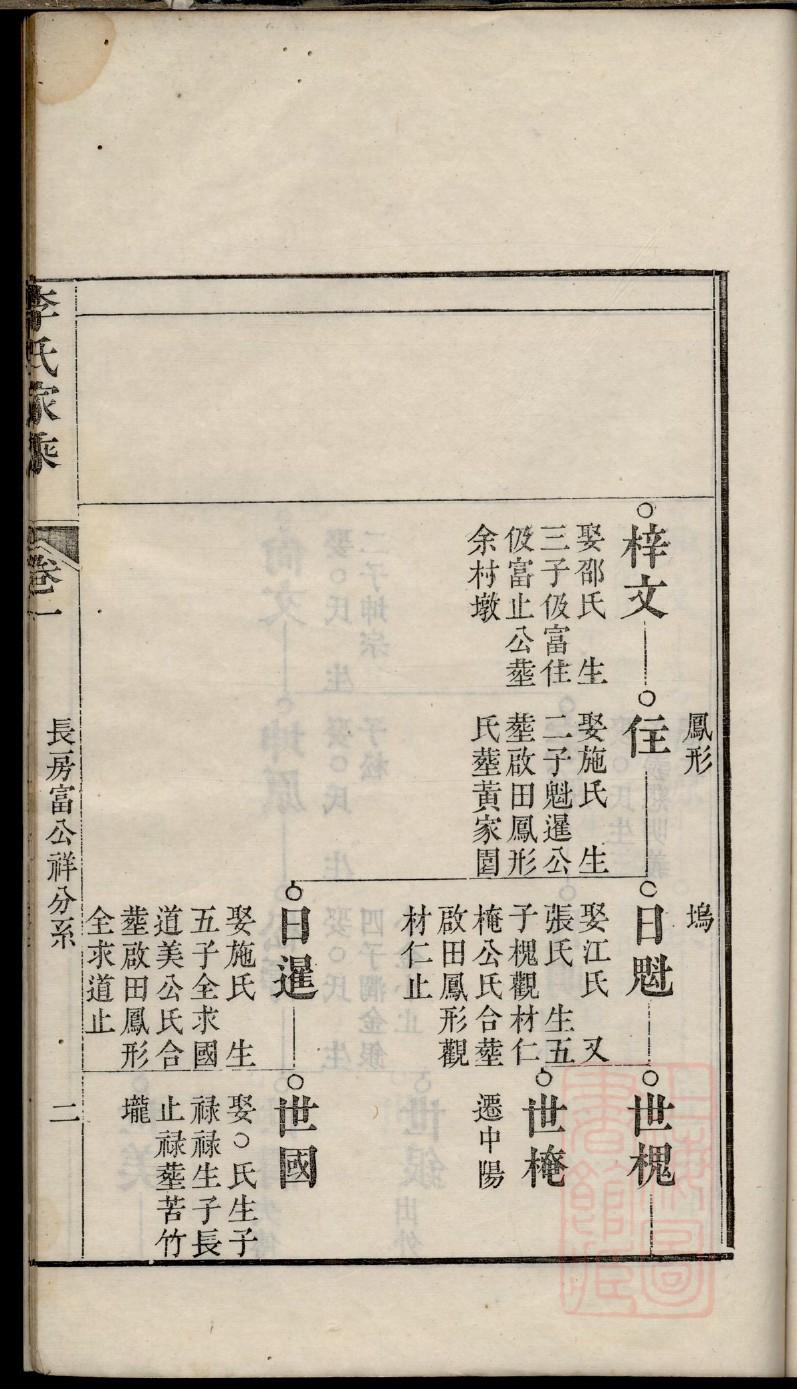 梓文
娶邵氏　生
三子伋富住
伋富止公塟
余村墩
鳳形
住
娶施氏　生
二子魁暹公
塟啟田鳳形
氏塟黃家園
塢
日魁
娶江氏　又
張氏　生五
子槐觀材仁
橈公氏合塟
啟田鳳形觀
材仁止
日暹
娶施氏　生
五子全求國
道美公氏合
塟啟田鳳形
全求道止
世槐
世橈
遷中陽
世國
娶○氏生子
祿祿生子長
止祿塟苦竹
壠
李氏家乘
卷一
長房富公祥分系
二